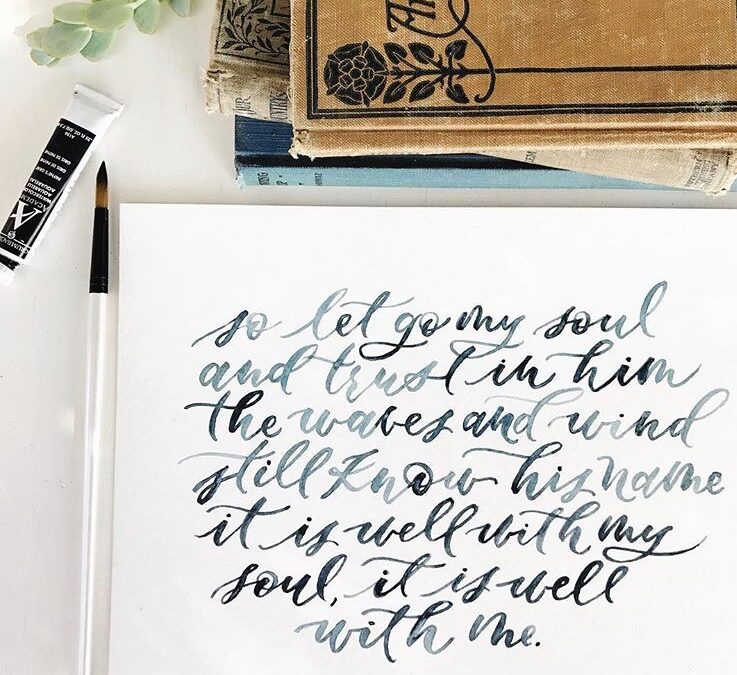 so let go my soul
and trust in him
the waves and wind
still know his name
it is well with my
soul, it is well
with me.
A
ACADEMY
PAYNE'S GRAY
GRIS DE PAYNE